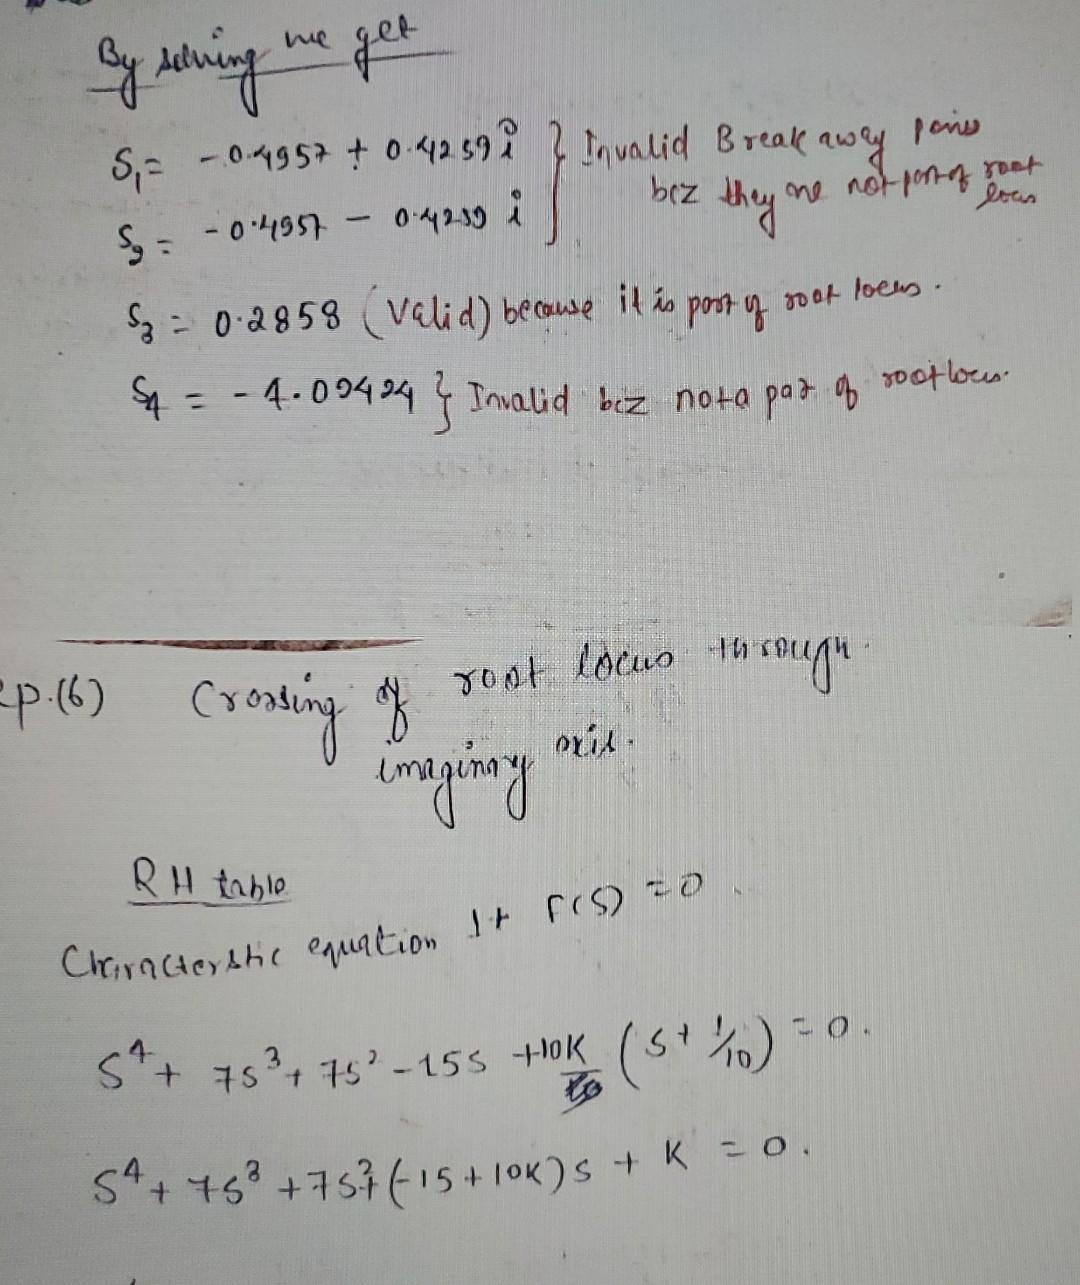 By solving we get
S₁ = -0.4957 + 0.4259 i } Invalid Break away
bcz they are not part of root locus
S₂ = -0.4957 - 0.4259 i
S₃ = 0.2858 (Valid) because it is part of root locus.
S₄ = -4.09424 } Invalid bcz not a par of root locus.
ep.(6) Crossing of root locus through
imaginary axis.
RH table
Characterstic equation 1+ F(S) = 0
S⁴ + 7S³ + 7S² - 15S + 10K (S + 1/10) = 0.
S⁴ + 7S³ + 7S² + (-15 + 10K)S + K = 0.